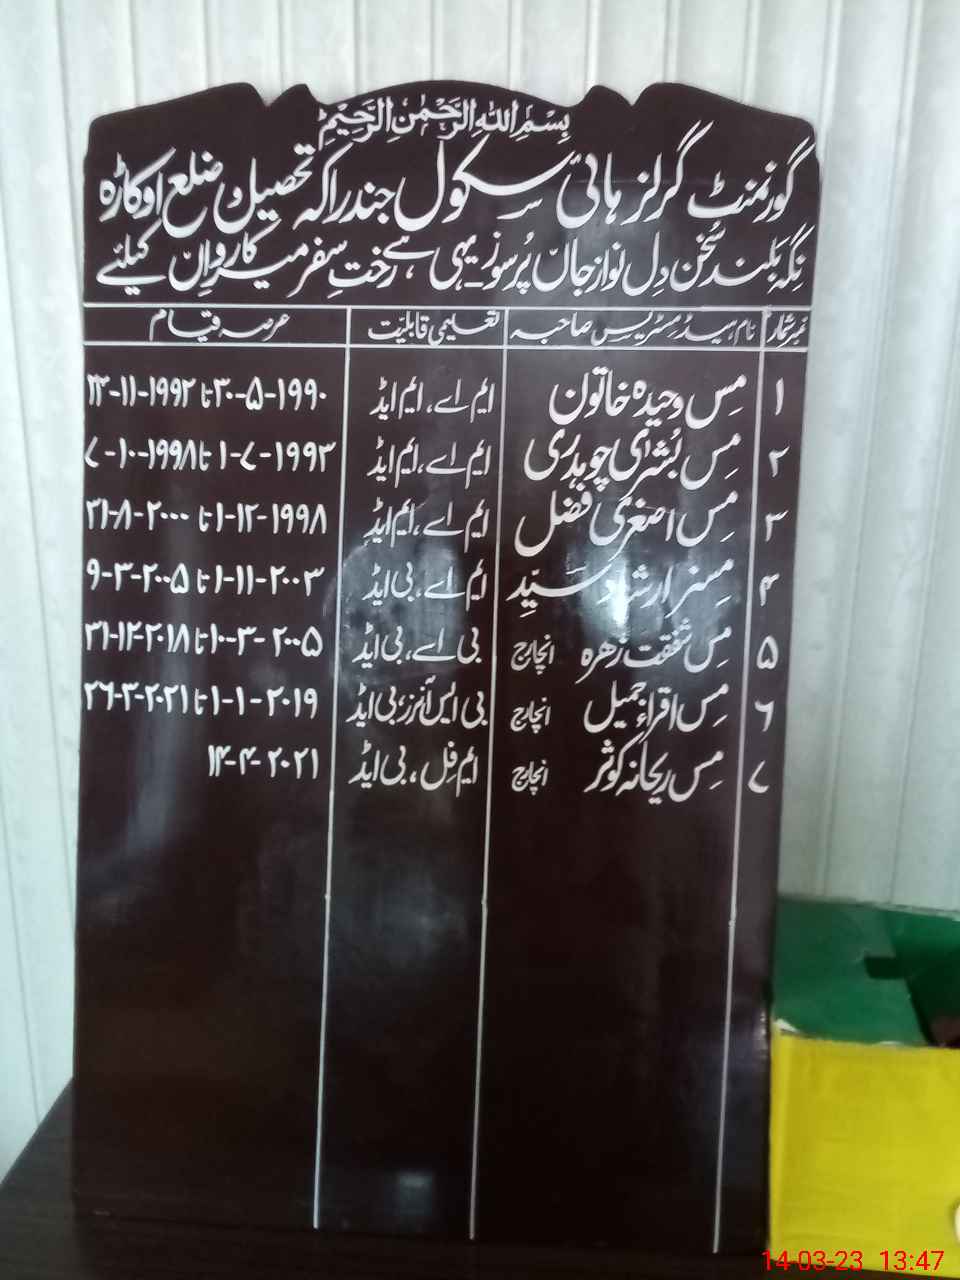 بِسْمِ اللہِ الرَّحْمٰنِ الرَّحِیْمِ
گورنمنٹ گرلز ہائی سکول جندراکہ تحصیل ضلع اوکاڑہ
نِگہ بُلند سُخن دِل نواز جاں پُرسوز یہی ہے رختِ سفر میرِ کارواں کیلئے
نمبر شمار نام ہیڈ مسٹریس صاحبہ تعلیمی قابلیّت عرصہ قیام
۱ مِس وحیدہ خاتون ایم اے، ایم ایڈ ۱۹۹۰-۵-۳۰ تا ۱۹۹۲-۱۱-۱۲
۲ مِس بُشریٰ چوہدری ایم اے، ایم ایڈ ۱۹۹۳-۷-۱ تا ۱۹۹۸-۱۰-۷
۳ مِس اصغریٰ فضل ایم اے، ایم ایڈ ۱۹۹۸-۱۲-۱ تا ۲۰۰۰-۸-۳۱
۴ مِسنر ارشاد سیّد ایم اے، بی ایڈ ۲۰۰۳-۱۱-۱ تا ۲۰۰۵-۳-۹
۵ مِس شفقت زہرہ انچارج بی اے، بی ایڈ ۲۰۰۵-۳-۱۰ تا ۲۰۱۸-۱۲-۳۱
۶ مِس اقراء جمیل انچارج بی ایس آنرز، بی ایڈ ۲۰۱۹-۱-۱ تا ۲۰۲۱-۳-۲۶
۷ مِس ریحانہ کوثر انچارج ایم فِل، بی ایڈ ۲۰۲۱-۴-۱۴
14-03-23 13:47